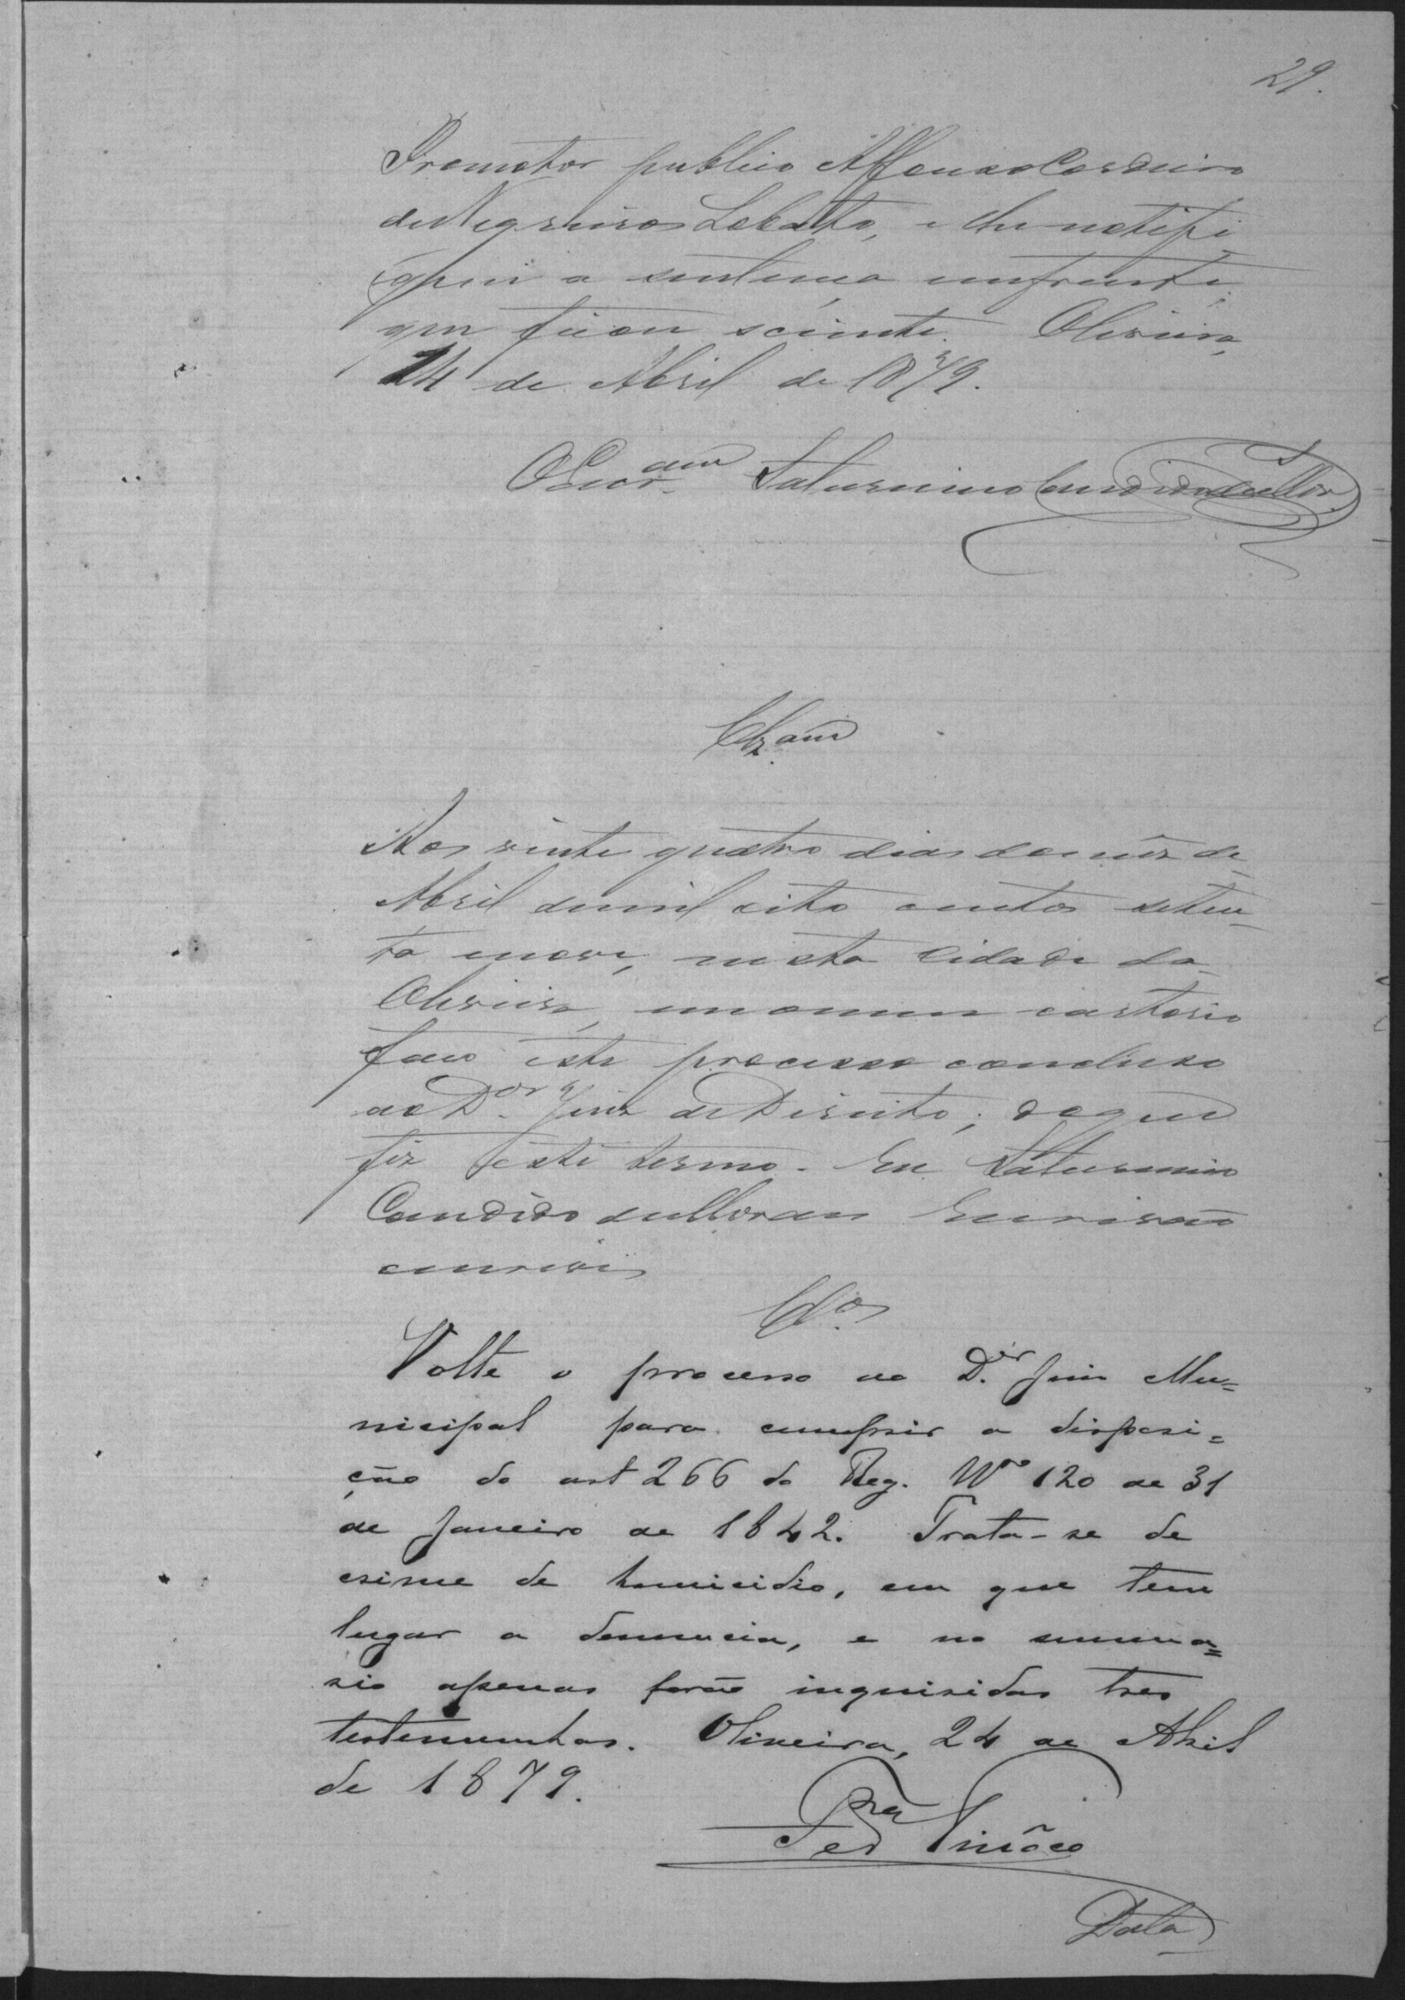 29.
Promotor publico Affonso Cordeiro
de Negreiros Lobatto, e lhe notifi-
quei a sentença emfrente
que ficou sciente. Oliveira,
24 de Abril de 1879.
O Escr.am Saturnino Candido
Clzam
Aos vinte quatro dias do mêz de
Abril de mil oito centos seten-
ta e nove, nesta Cidade da
Oliveira, em o meu cartorio
faço este processo concluso
ao D.or Juiz de Direito; do que
fiz este termo. Eu Saturnino
Candido Escrivão
escrevi
Cl.os
Volte o processo ao D.or Juiz Mu=
nicipal para cumprir a disposi=
ção do art 266 do Reg. Nro 120 de 31
de Janeiro de 1842. Trata-se de
crime de homicidio, em que tem
lugar a denuncia, e no summa=
rio apenas forão inquiridas tres
testemunhas. Oliveira, 24 de Abril
de 1879.
Tinôco
Data